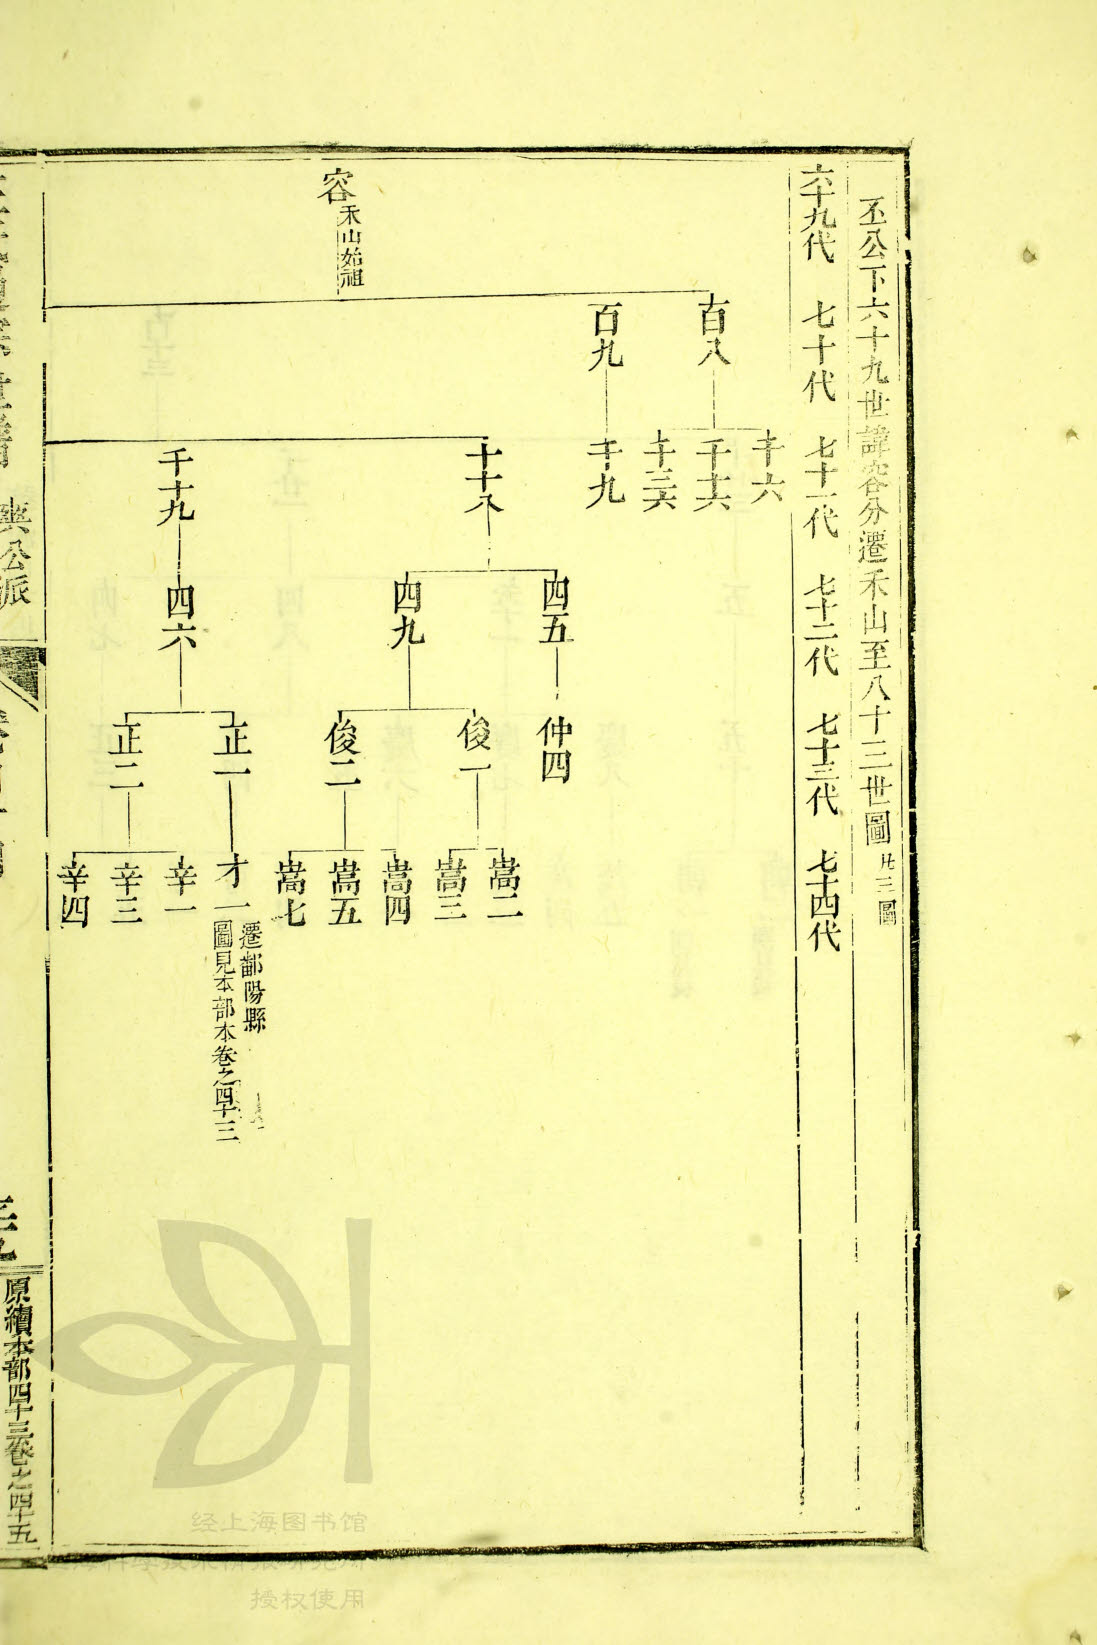 丕公下六十九世諱容分遷禾山至八十三世圖 共三圖
六十九代 七十代 七十一代 七十二代 七十三代 七十四代
容 禾山始祖
百八
百九
千六
千十六
千三六
千九
千十八
千十九
四五
四九
四六
仲四
俊一
俊二
正一
正二
嵩二
嵩三
嵩四
嵩五
嵩七
才一 遷鄱陽縣
圖見本部本卷之四十三
辛一
辛三
辛四
公派
原續本部四十三卷之四十五
经上海图书馆
授权使用